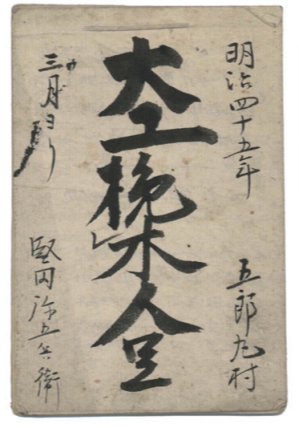 明治四十五年
五郎丸村
大工挽木人足
三月ヨリ
堅田治五兵衛